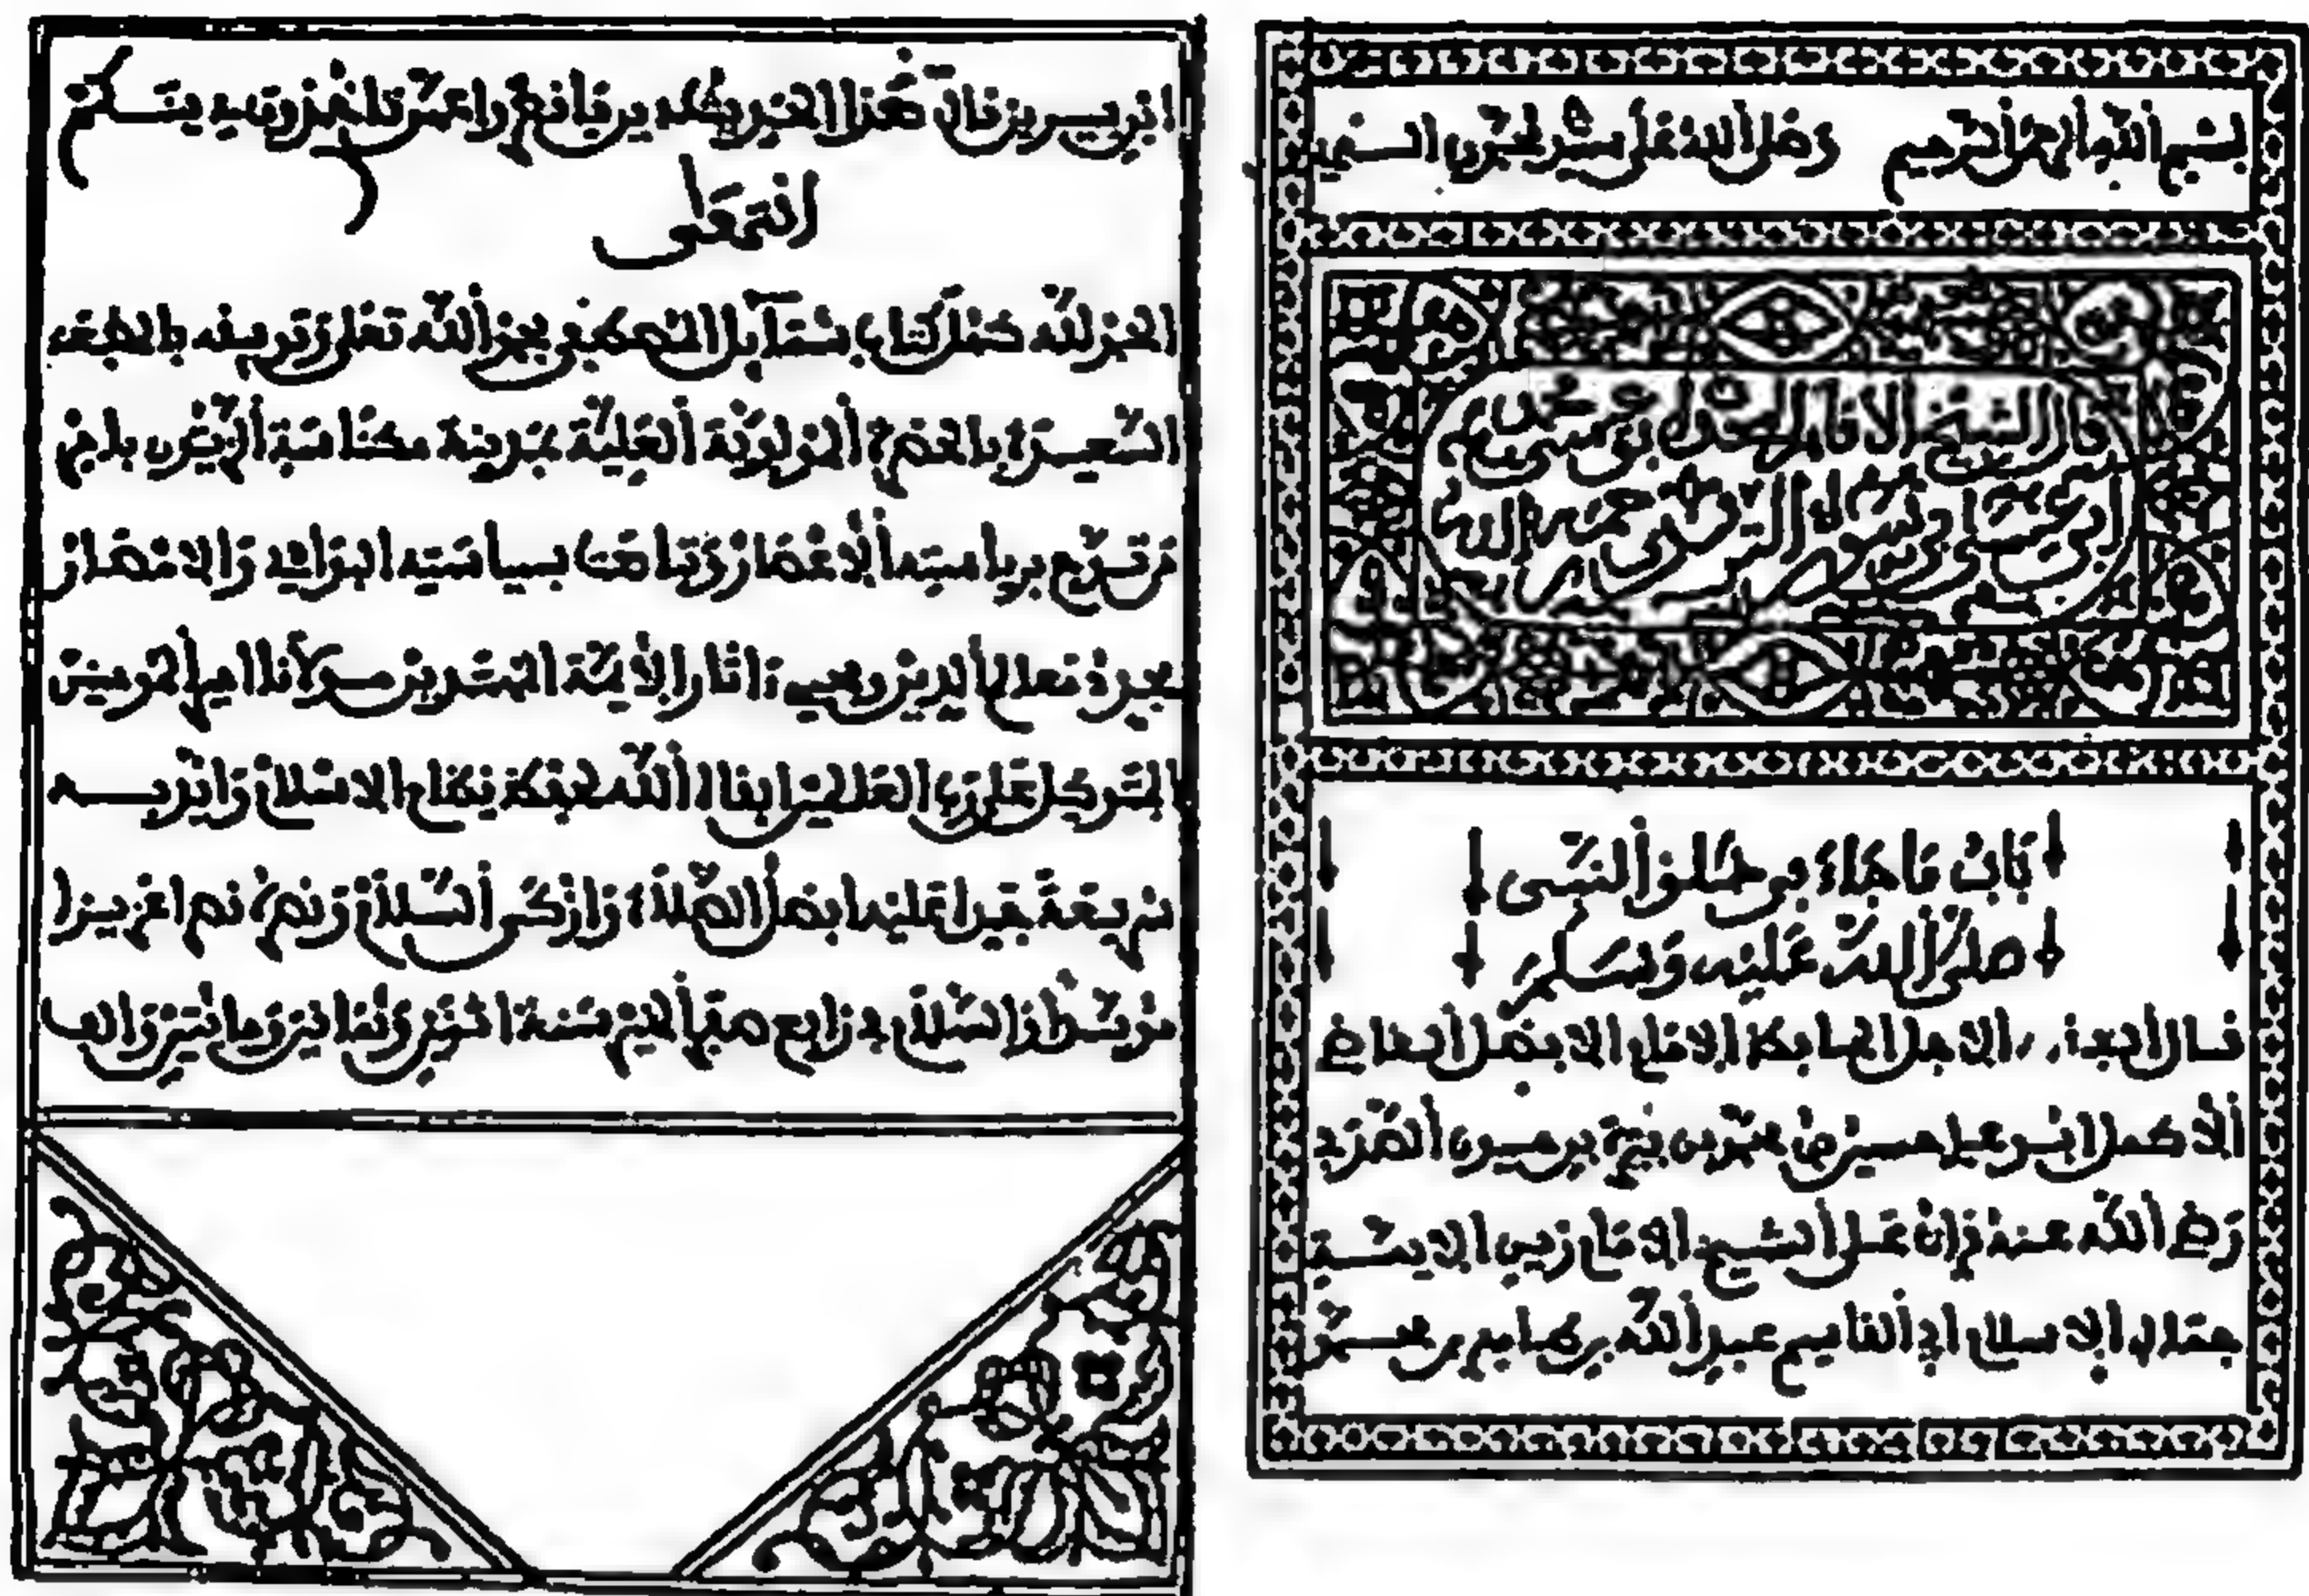 بسم الله الرحمن الرحيم وصلى الله على سيدنا محمد
الشيخ الامام
ابن عيسى بن سورة الترمذي رحمه الله
باب ما جاء في خلق النبي
صلى الله عليه وسلم
قال الاجل الحافظ الامام الافضل
الاكمل ابو علي حسين بن محمد بن بن الصدفي
رضي الله عنه قرات على الشيخ الامام زين الايمة
جمال الاسلام ابي القاسم عبد الله بن طاهر بن محمد
ابن سيرين قال هذا دين فانظروا عمن تاخذون دينكم
انتهى
الحمد لله كمل كتاب شمآيل المصطفى بحمد الله تعلى وتوفيقه بالمطبعة
السعيدة بالحضرة المولوية العلية بمدينة مكناسة الزيتون باذن
الاعصار وتباهت بسياسته البوادي والامصار
معالم الدين ومحيي ءاثار الايمة المهتدين مولانا امير المومنين
المتوكل على رب العالمين ابقاه الله لحفظ نظام الاسلام وايد به
شريعة عليه افضل الصلاة وازكى السلام ونصره نصرا عزيزا
رابع صفر الخير سنة اثنين وثمانين ومائتين والف